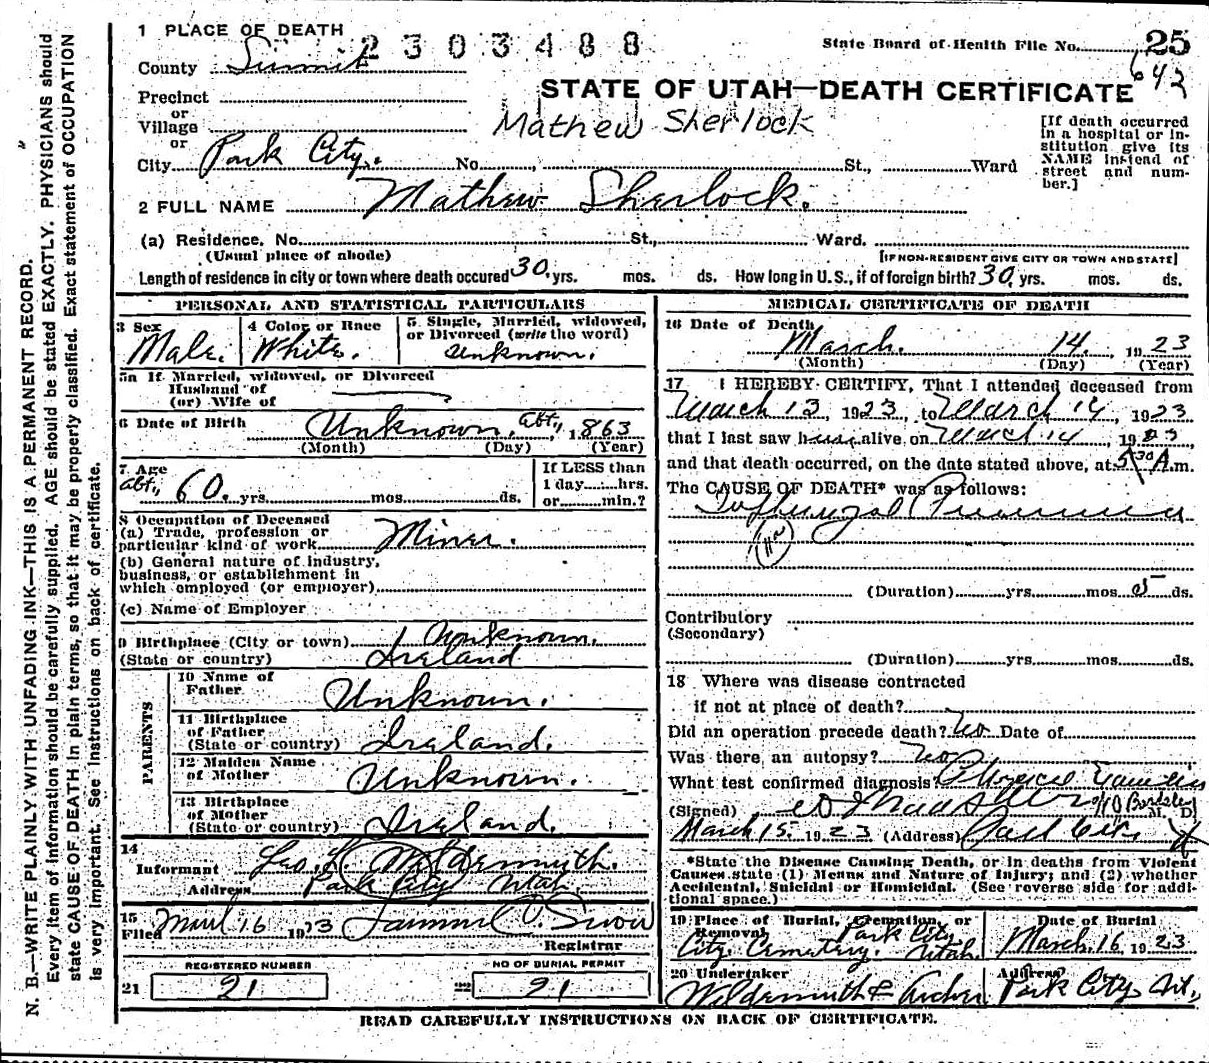 1 PLACE OF DEATH
2303488
State Board of Health File No. 25
County Summit
642
Precinct
STATE OF UTAH—DEATH CERTIFICATE
or
Village
Mathew Sherlock
[If death occurred
in a hospital or in-
stitution give its
NAME instead of
street and num-
ber.]
or
City Park City. No. St., Ward
2 FULL NAME Mathew Sherlock.
(a) Residence. No. St., Ward.
(Usual place of abode) [IF NON-RESIDENT GIVE CITY OR TOWN AND STATE]
Length of residence in city or town where death occured 30 yrs. mos. ds. How long in U.S., if of foreign birth? 30 yrs. mos. ds.
PERSONAL AND STATISTICAL PARTICULARS
3 Sex
Male.
4 Color or Race
White.
5. Single, Married, widowed,
or Divorced (write the word)
Unknown.
5a If Married, widowed, or Divorced
Husband of
(or) Wife of
6 Date of Birth Unknown. abt., 1863
(Month) (Day) (Year)
7 Age
abt., 60. yrs. mos. ds.
If LESS than
1 day hrs.
or min.?
8 Occupation of Deceased
(a) Trade, profession or
particular kind of work Miner.
(b) General nature of industry,
business, or establishment in
which employed (or employer)
(c) Name of Employer
9 Birthplace (City or town) Unknown.
(State or country) Ireland
PARENTS
10 Name of
Father Unknown.
11 Birthplace
of Father
(State or country) Ireland.
12 Maiden Name
of Mother Unknown.
13 Birthplace
of Mother
(State or country) Ireland.
14
Informant Geo. Wildermuth.
Address Park City Utah.
15
Filed March 16 1923 Registrar
REGISTERED NUMBER
21 21
NO OF BURIAL PERMIT
22 21
MEDICAL CERTIFICATE OF DEATH
16 Date of Death
March. 14. 1923
(Month) (Day) (Year)
17 I HEREBY CERTIFY, That I attended deceased from
March 13, 1923, to March 14 1923
that I last saw him alive on March 14, 1923,
and that death occurred, on the date stated above, at 5 30 A.m.
The CAUSE OF DEATH* was as follows:
Influenzal Pneumonia
(Duration) yrs. mos. 5 ds.
Contributory
(Secondary)
(Duration) yrs. mos. ds.
18 Where was disease contracted
if not at place of death?
Did an operation precede death? No Date of
Was there an autopsy? No
What test confirmed diagnosis?
(Signed) M. D.
March 15. 1923 (Address) Park City
*State the Disease Causing Death, or in deaths from Violent
Causes state (1) Means and Nature of Injury; and (2) whether
Accidental, Suicidal or Homicidal. (See reverse side for addi-
tional space.)
19 Place of Burial, Cremation, or
Removal Park City
City. Cemetery. Utah.
Date of Burial
March. 16, 1923
20 Undertaker
Wildermuth & Archer
Address
Park City Ut.,
READ CAREFULLY INSTRUCTIONS ON BACK OF CERTIFICATE.
N. B.—WRITE PLAINLY WITH UNFADING INK—THIS IS A PERMANENT RECORD.
Every item of information should be carefully supplied. AGE should be stated EXACTLY. PHYSICIANS should
state CAUSE OF DEATH in plain terms, so that it may be properly classified. Exact statement of OCCUPATION
is very important. See instructions on back of certificate.